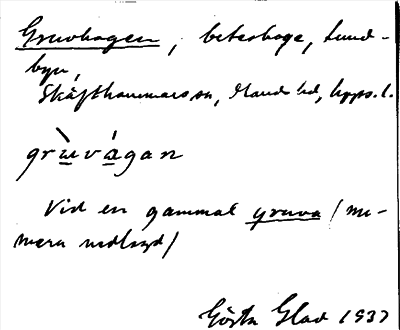 Gruvhagen, beteshage, Sund-
byn,
Skäfthammars sn, Olands hd, Upps. l.
grùvágan
Vid en gammal gruva (nu-
mera nedlagd)
Gösta Glad 1937